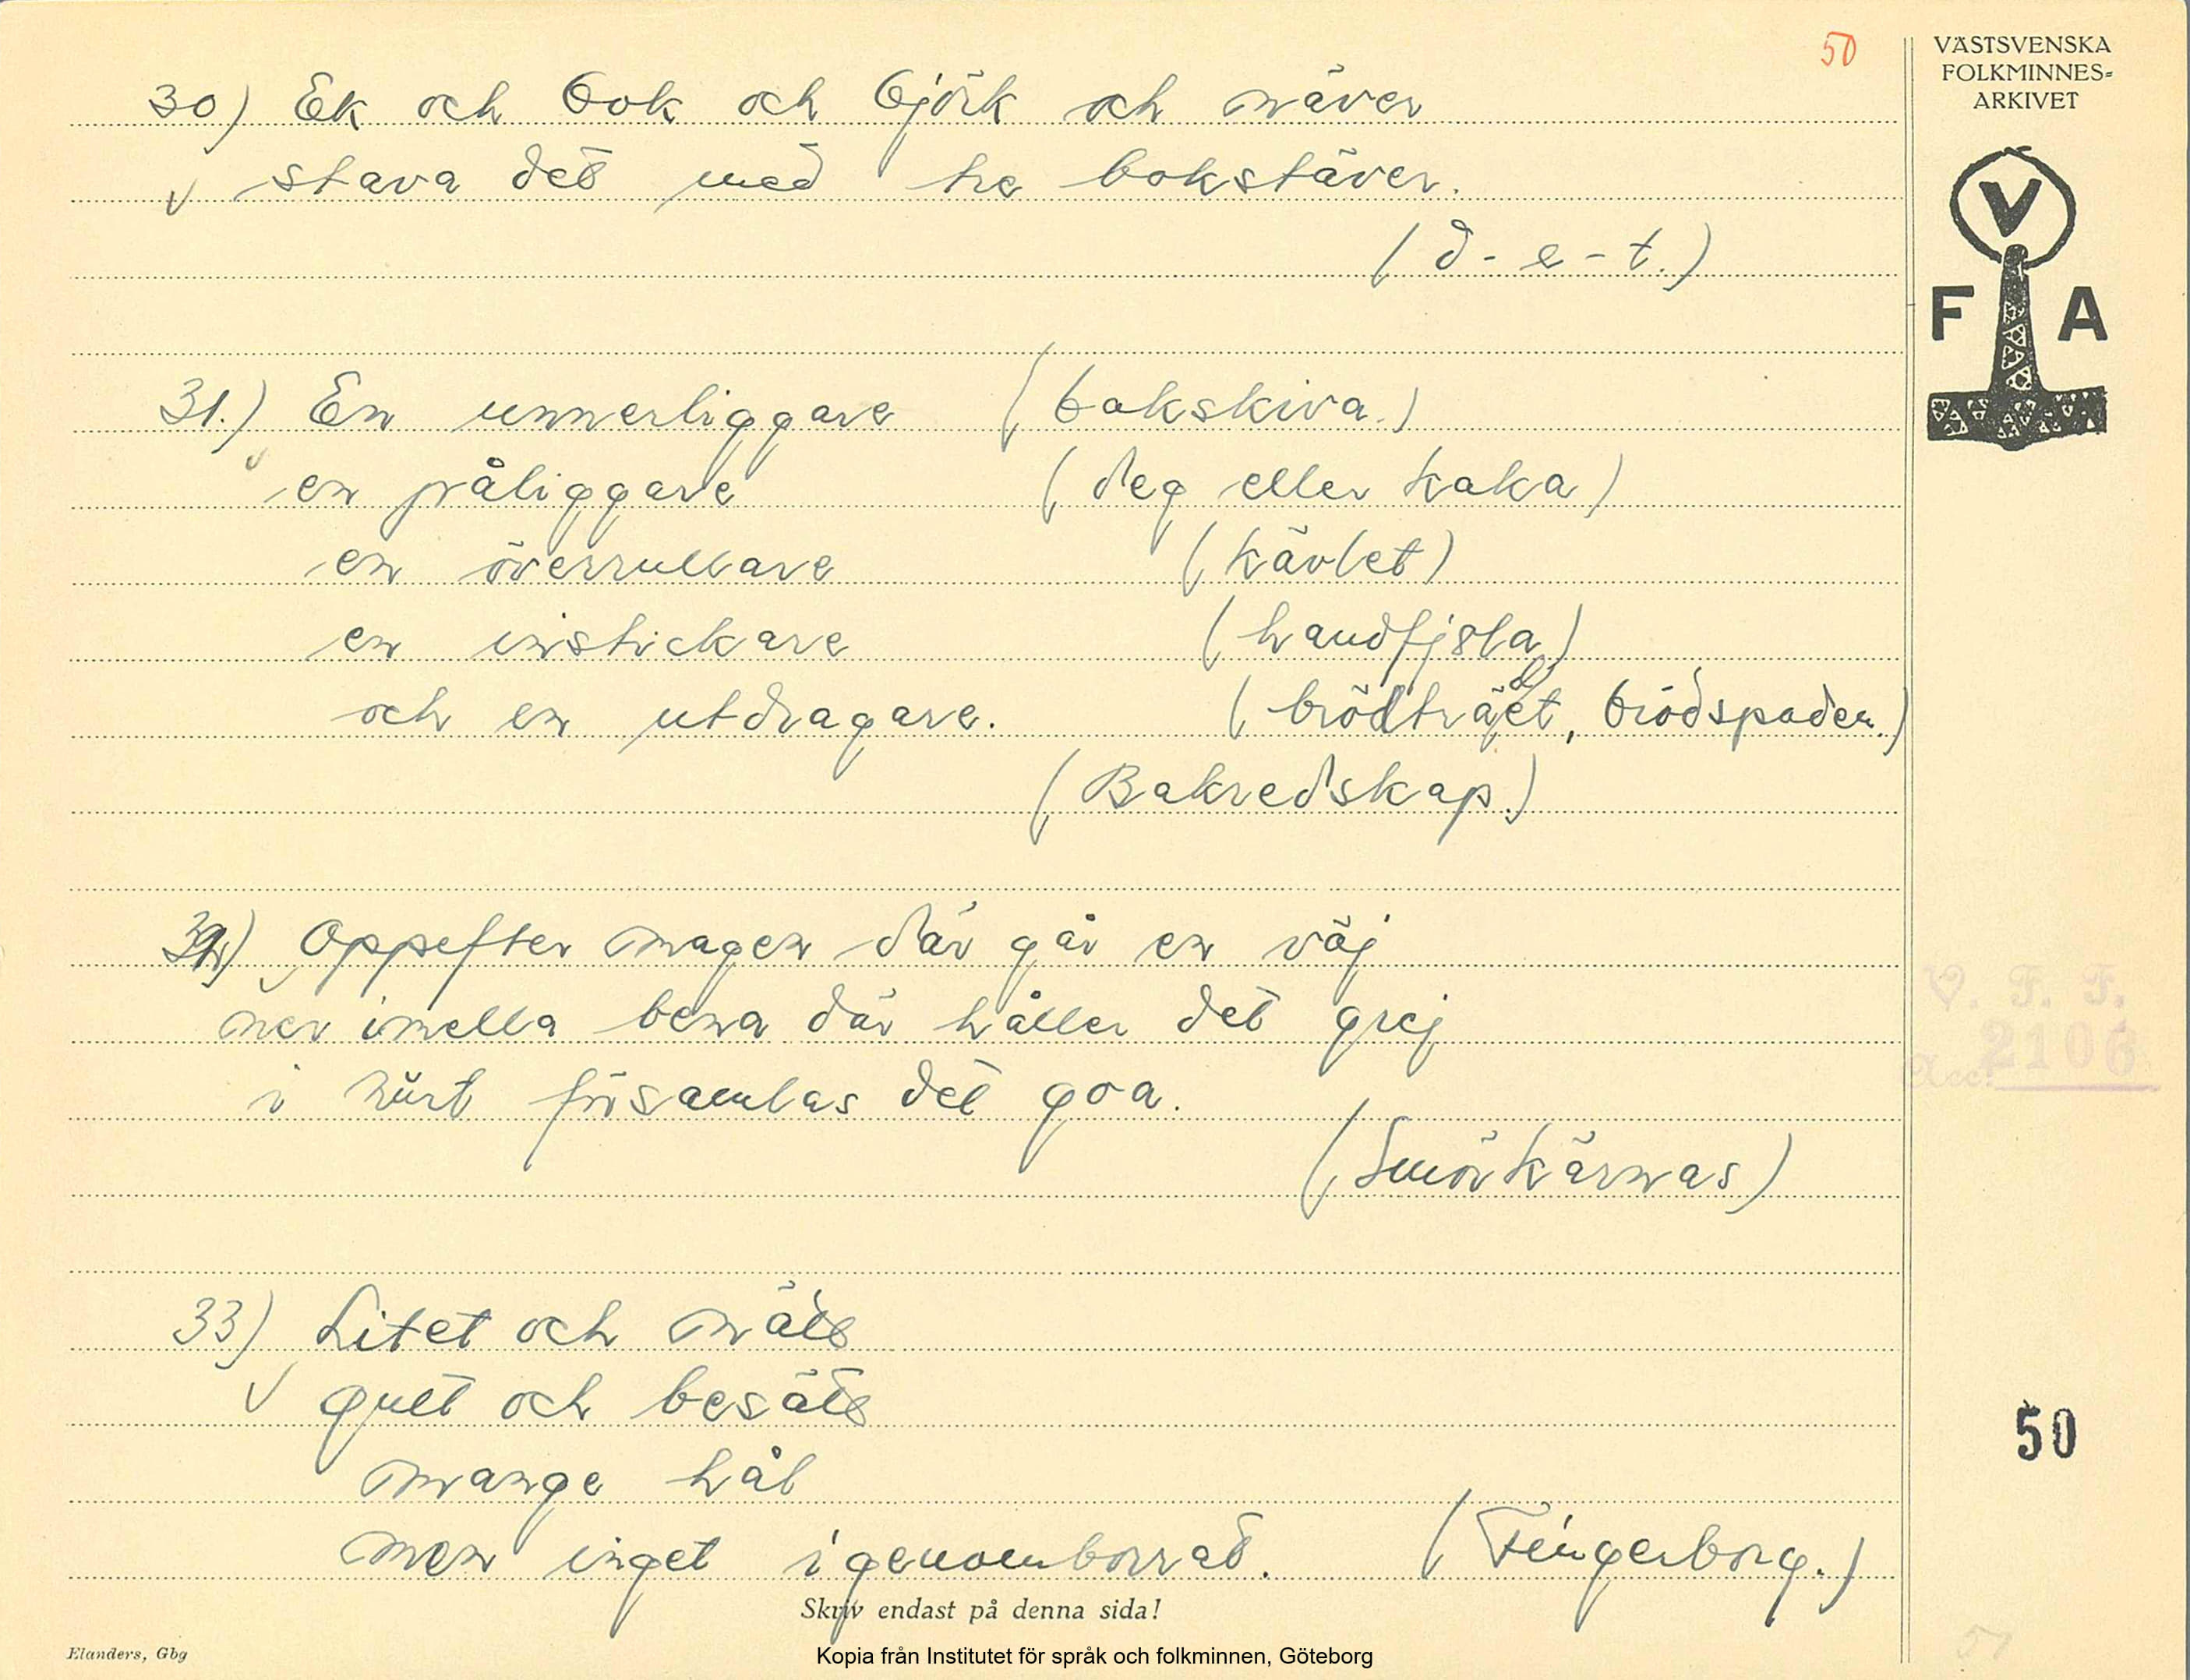 50
VÄSTSVENSKA
FOLKMINNES=
ARKIVET
V
F A
30) Ek och bok och björk och näver
v stava det med tre bokstäver.
(d - e - t.)
31.) En unnerliggare (bakskiva.)
v en påliggare (deg eller kaka)
en överrullare (kävlet)
en instickare (handfjöla)
och en utdragare. (brödträet, brödspaden.)
(Bakredskap.)
32) Oppefter magen där går en väj
ner imella bena där håller det grej
i församlas det goa.
(Smörkärnas)
V. F. F.
Acc. 2106
33) Litet och nätt
v gult och besätt
mange hål
men inget igenomborrat. (Fingerborg.)
50
Skriv endast på denna sida!
Elanders, Gbg
Kopia från Institutet för språk och folkminnen, Göteborg
51